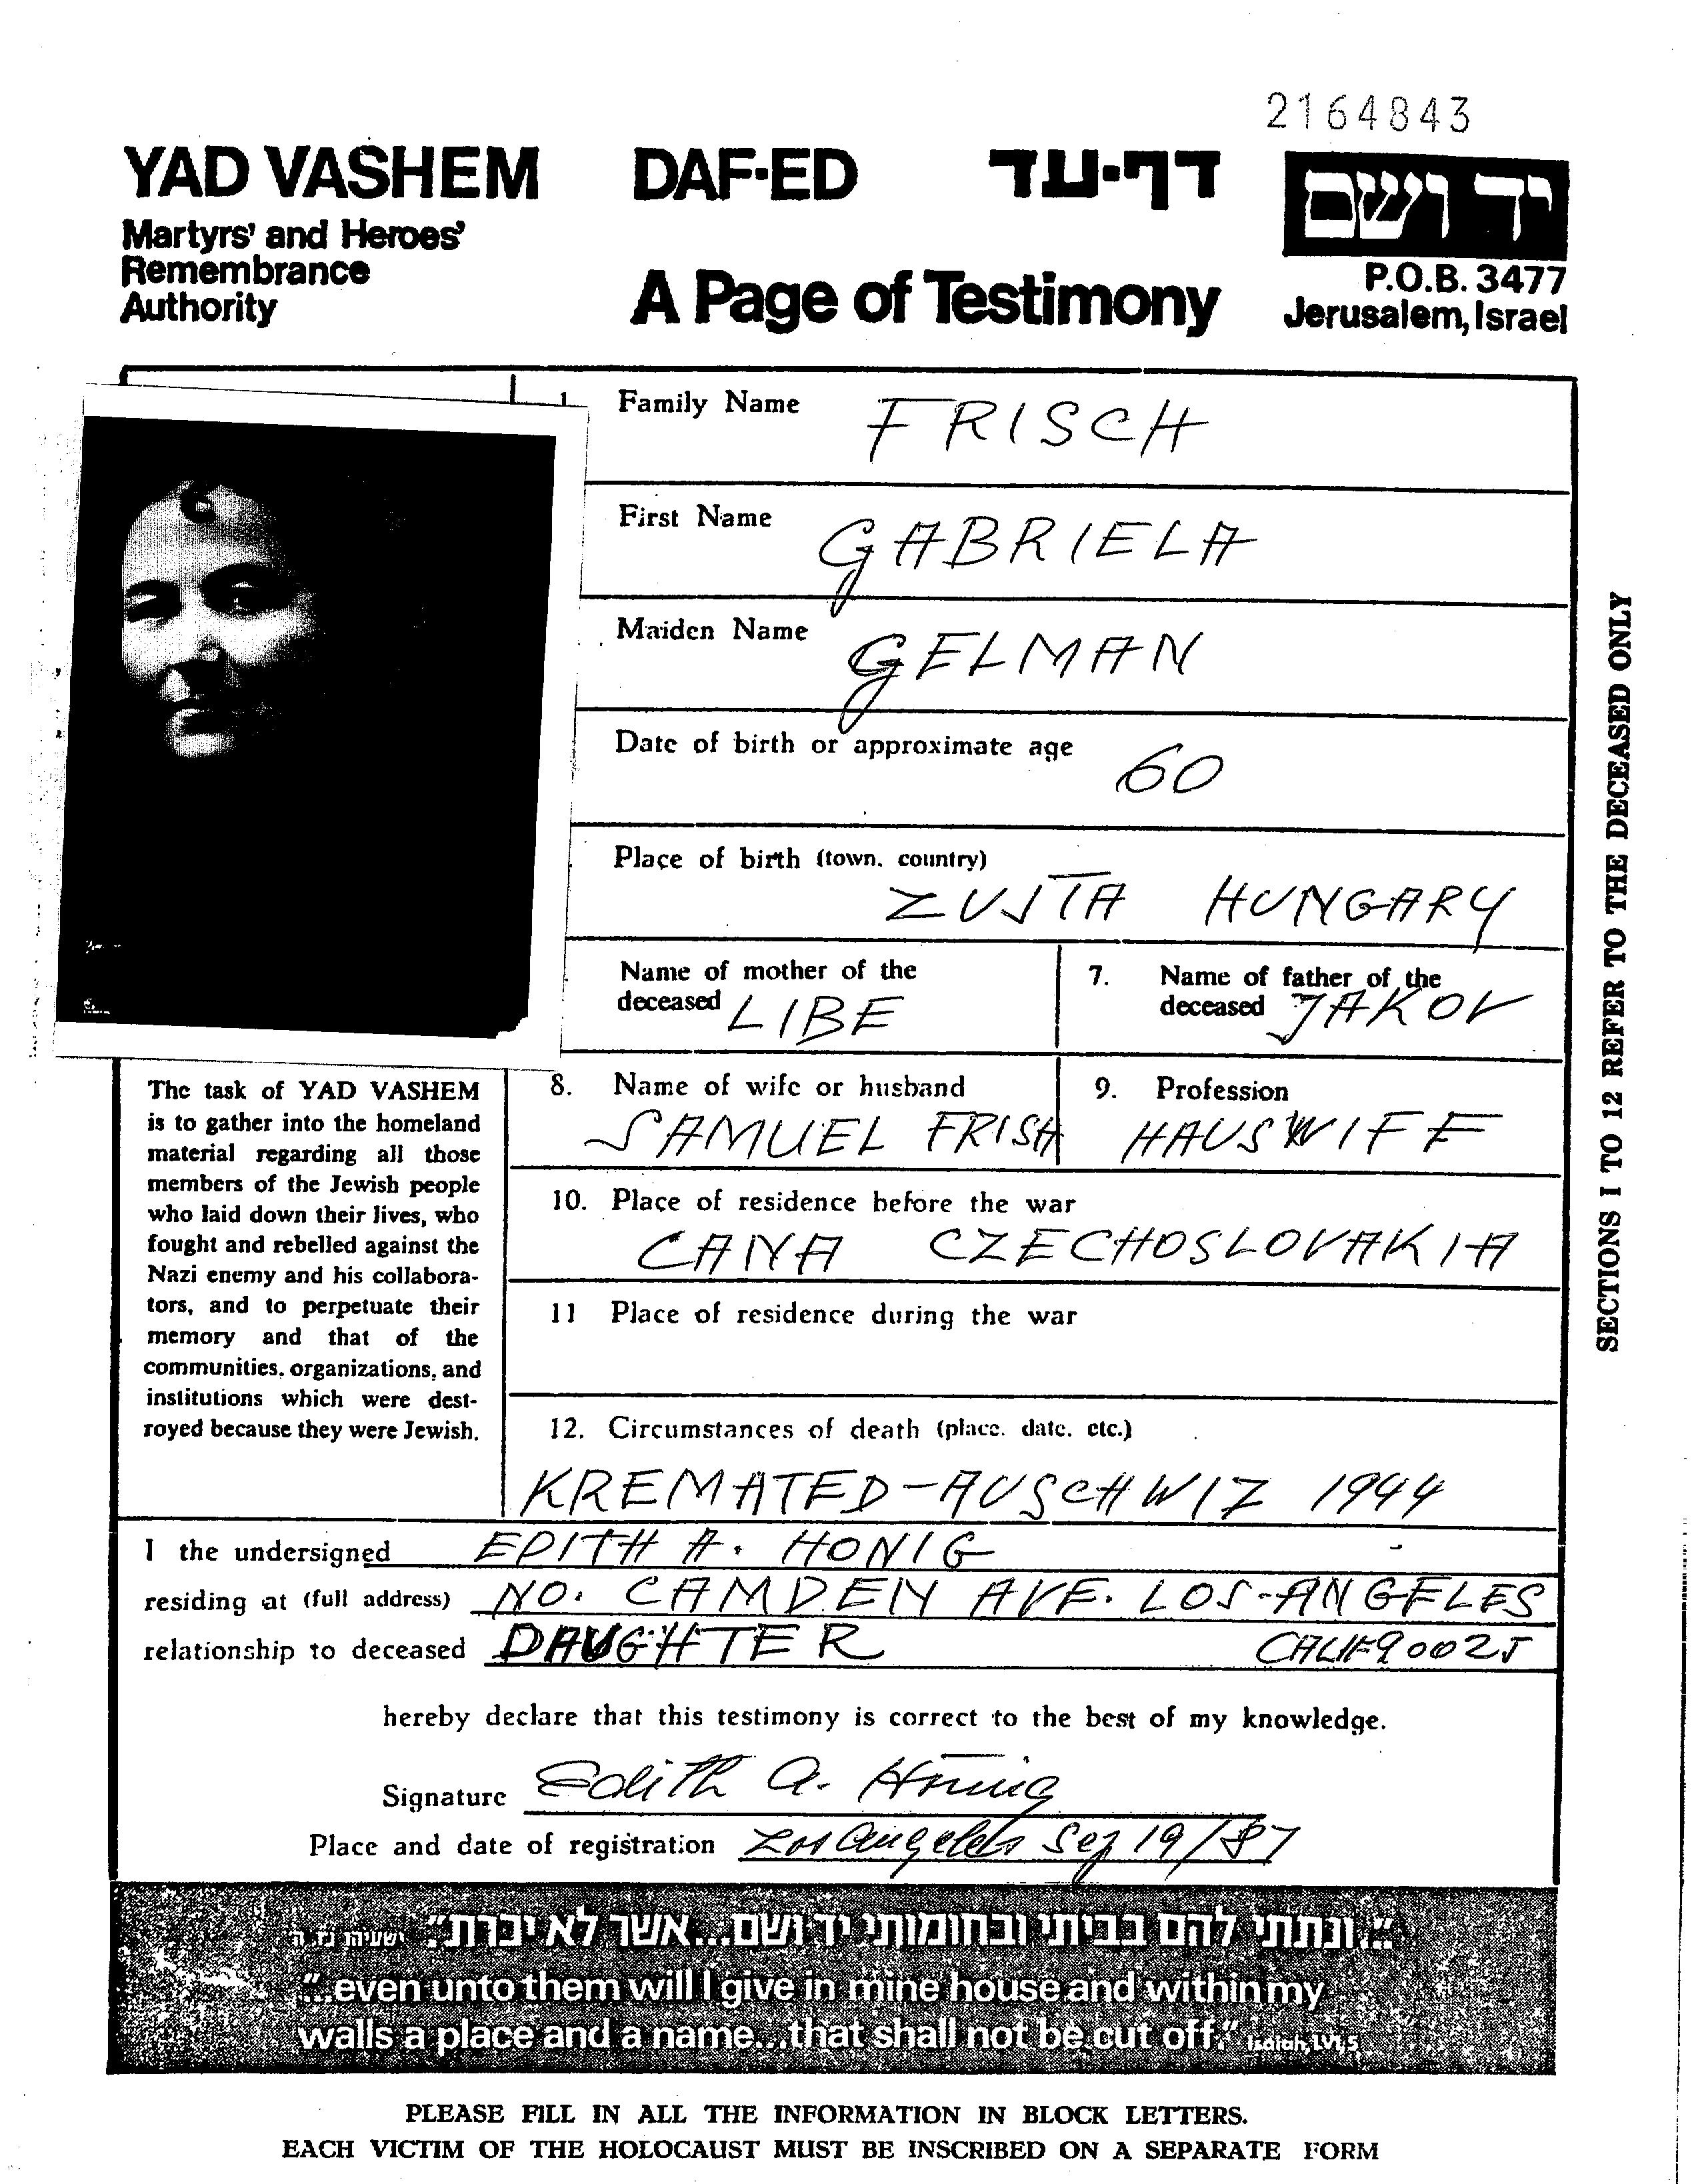 2164843
YAD VASHEM DAF-ED דף-עד יד ושם
Martyrs' and Heroes'
Remembrance
Authority
A Page of Testimony
P.O.B. 3477
Jerusalem, Israel
Family Name FRISCH
First Name GABRIELA
Maiden Name GELMAN
Date of birth or approximate age 60
Place of birth (town, country)
ZUJTA HUNGARY
Name of mother of the
deceased LIBE
7. Name of father of the
deceased JAKOV
8. Name of wife or husband
SAMUEL FRISH
9. Profession
HAUSWIFE
10. Place of residence before the war
CANA CZECHOSLOVAKIA
11 Place of residence during the war
12. Circumstances of death (place, date, etc.)
KREMATED-AUSCHWIZ 1944
The task of YAD VASHEM
is to gather into the homeland
material regarding all those
members of the Jewish people
who laid down their lives, who
fought and rebelled against the
Nazi enemy and his collabora-
tors, and to perpetuate their
memory and that of the
communities, organizations, and
institutions which were dest-
royed because they were Jewish.
SECTIONS 1 TO 12 REFER TO THE DECEASED ONLY
I the undersigned EDITH A. HONIG
residing at (full address) NO. CAMDEN AVE. LOS-ANGELES
relationship to deceased DAUGHTER CALIF 90025
hereby declare that this testimony is correct to the best of my knowledge.
Signature Edith A. Honig
Place and date of registration Los Angeles Sep 19/87
"...ונתתי להם בביתי ובחומותי יד ושם...אשר לא יכרת" ישעיהו נו, ה
"...even unto them will I give in mine house and within my
walls a place and a name...that shall not be cut off." Isaiah, LVI, 5
PLEASE FILL IN ALL THE INFORMATION IN BLOCK LETTERS.
EACH VICTIM OF THE HOLOCAUST MUST BE INSCRIBED ON A SEPARATE FORM